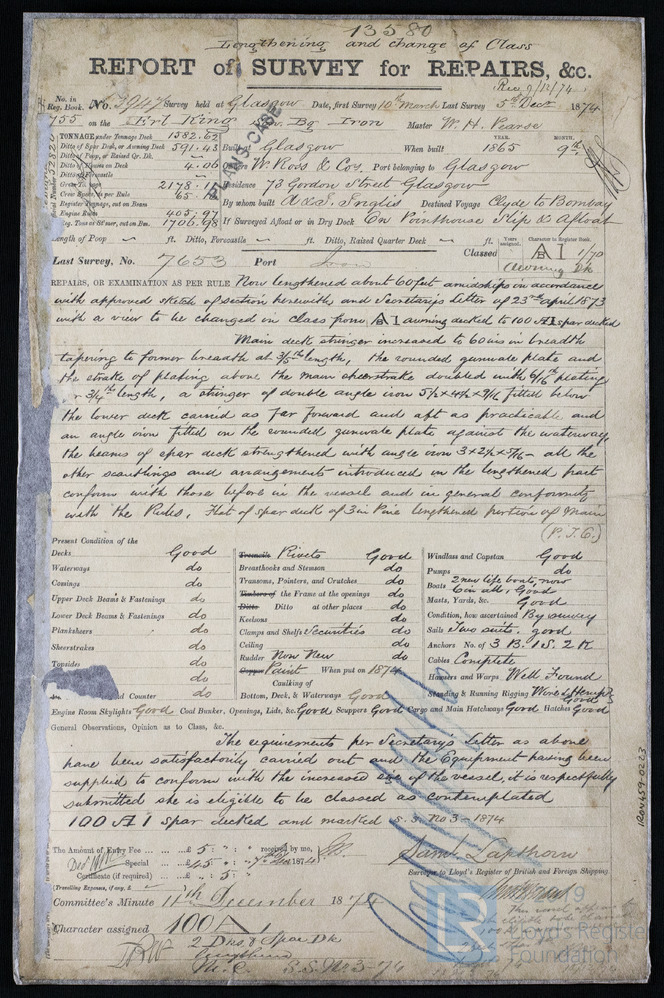 13580
Lengthening and change of Class
REPORT of SURVEY for REPAIRS, &c.
Rec 9/12/74
No. in Reg. Book. No. 3947 Survey held at Glasgow Date, first Survey 10th March Last Survey 5th Decr 1874
755 on the Erl King Iron Master W. H. Pearse
TONNAGE under Tonnage Deck 1582.62
Ditto of Spar Deck, or Awning Deck 591.43 Built at Glasgow When built YEAR. 1865 MONTH. 9th
Ditto of Poop, or Raised Qr. Dk.
Ditto of Houses on Deck 4.06 Owners W. Ross & Cos. Port belonging to Glasgow
Ditto of Forecastle
Gross 2178.11 Residence 73 Gordon Street Glasgow
Crew Space, as per Rule 65.
Register Tonnage, cut out on Beam By whom built A & J. Inglis Destined Voyage Clyde to Bombay
Engine Room 405.97
Reg. Tons as Str. cut on Bm. 1706.98 If Surveyed Afloat or in Dry Dock On Pointhouse Slip & Afloat
PLANS CASE
Length of Poop ft. Ditto, Forecastle ft. Ditto, Raised Quarter Deck ft. Years assigned. Character in Register Book.
Last Survey, No. 7653 Port Iron Classed A1 1/70
Awning Dk
REPAIRS, OR EXAMINATION AS PER RULE Now lengthened about 60 feet amidships in accordance
with approved sketch of section herewith and Secretary's letter of 23rd April 1873
with a view to be changed in class from A1 awning decked to 100 A1 spar decked
Main deck stringer increased to 60 ins in breadth
tapering to former breadth at 3/5th length, the rounded gunwale plate and
the strake of plating above the main sheerstrake doubled with 6/16th plating
for 3/4th length, a stringer of double angle iron 5½ x 4½ x 9/16 fitted below
the lower deck carried as far forward and aft as practicable and
an angle iron fitted on the rounded gunwale plate against the waterway,
the beams of spar deck strengthened with angle iron 3 x 2½ x 5/16 - all the
other scantlings and arrangements introduced in the lengthened part
conform with those before in the vessel and in general conformity
with the Rules, Flat of spar deck of 3 in Pine lengthened portion of Main
(P.T.O.)
Present Condition of the
Decks Good
Waterways do
Comings do
Upper Deck Beams & Fastenings do
Lower Deck Beams & Fastenings do
Planksheers do
Sheerstrakes do
Topsides do
do
and Counter do
Treenails Rivets Good
Breasthooks and Stemson do
Transoms, Pointers, and Crutches do
Timbers of the Frame at the openings do
Ditto Ditto at other places do
Keelsons do
Clamps and Shelfs Securities do
Ceiling do
Rudder Now New do
Copper Paint When put on 1874
Caulking of
Bottom, Deck, & Waterways Good
Windlass and Capstan Good
Pumps do
Boats 2 new life boats, now
6 in all, Good
Masts, Yards, &c. Good
Condition, how ascertained By survey
Sails Two suits. good
Anchors No. of 3 B. 1 S. 2 K
Cables Complete
Hawsers and Warps Well Found
Standing & Running Rigging Wire & Hemp
Good
Engine Room Skylights Good Coal Bunker, Openings, Lids, &c. Good Scuppers Good Cargo and Main Hatchways Good Hatches Good
General Observations, Opinion as to Class, &c.
The requirements per Secretary's letter as above
have been satisfactorily carried out and the Equipment having been
supplied to conform with the increased size of the vessel, it is respectfully
submitted she is eligible to be classed as contemplated
100 A 1 spar decked and marked s.s. No 3 - 1874
The Amount of Entry Fee £ 5 : : received by me,
Special £ 45 : : 1874
Certificate (if required) £ 5 :
(Travelling Expenses, if any, £ )
Saml Lapthorn
Surveyor to Lloyd's Register of British and Foreign Shipping
Committee's Minute 11th December 1874
Character assigned 100 A 1
2 Dks & Spar Dk
Lengthened
M.C. S.S. No 3-74
IRON459-0223
LR
Lloyd's Register
Foundation